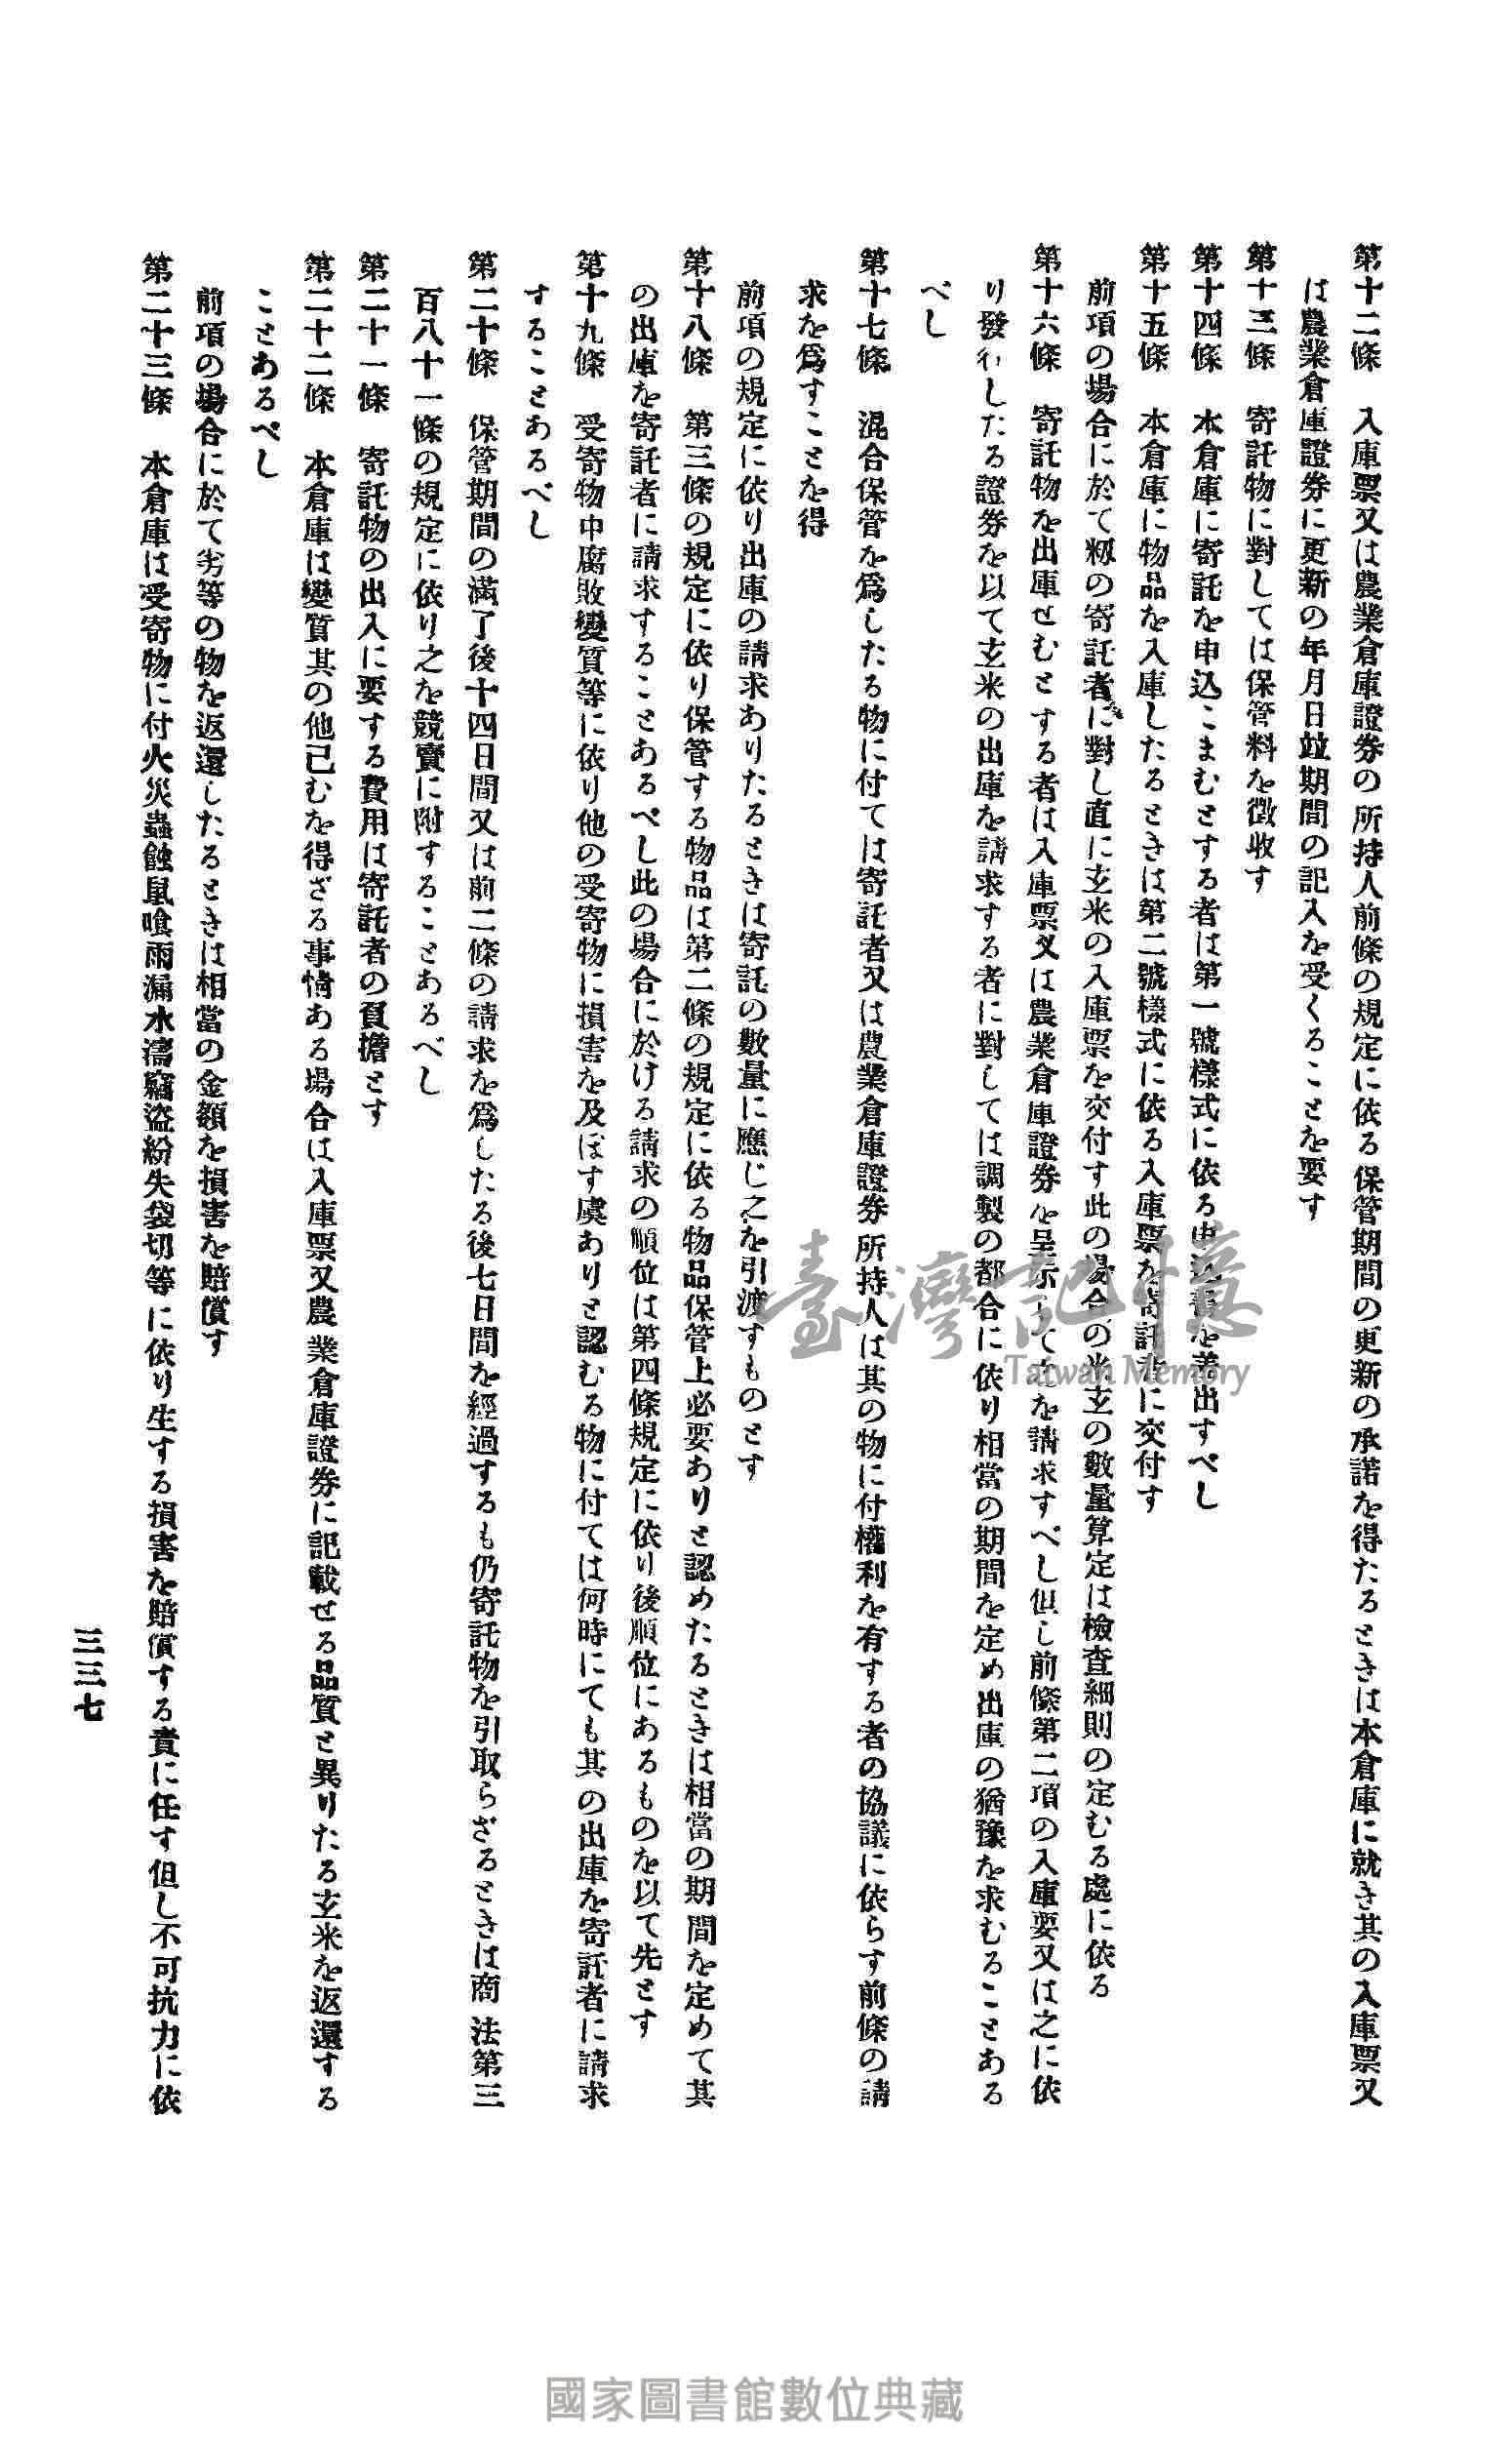 第十二條　入庫票又は農業倉庫證券の所持人前條の規定に依る保管期間の更新の承諾を得たるときは本倉庫に就き其の入庫票又
は農業倉庫證券に更新の年月日竝期間の記入を受くることを要す
第十三條　寄託物に對しては保管料を徴收す
第十四條　本倉庫に寄託を申込こまむとする者は第一號樣式に依る申込書を差出すべし
第十五條　本倉庫に物品を入庫したるときは第二號樣式に依る入庫票を寄託者に交付す
前項の場合に於て籾の寄託者に對し直に玄米の入庫票を交付す此の場合の米玄の數量算定は檢査細則の定むる處に依る
第十六條　寄託物を出庫せむとする者は入庫票又は農業倉庫證券を呈示して之を請求すべし但し前條第二項の入庫要又は之に依
り發行したる證券を以て玄米の出庫を請求する者に對しては調製の都合に依り相當の期間を定め出庫の猶豫を求むることある
べし
第十七條　混合保管を爲したる物に付ては寄託者又は農業倉庫證券所持人は其の物に付權利を有する者の協議に依らす前條の請
求を爲すことを得
前項の規定に依り出庫の請求ありたるときは寄託の數量に應じ之を引渡すものとす
第十八條　第三條の規定に依り保管する物品は第二條の規定に依る物品保管上必要ありと認めたるときは相當の期間を定めて其
の出庫を寄託者に請求することあるべし此の場合に於ける請求の順位は第四條規定に依り後順位にあるものを以て先とす
第十九條　受寄物中腐敗變質等に依り他の受寄物に損害を及ぼす虞ありと認むる物に付ては何時にても其の出庫を寄託者に請求
することあるべし
第二十條　保管期間の滿了後十四日間又は前二條の請求を爲したる後七日間を經過するも仍寄託物を引取らざるときは商法第三
百八十一條の規定に依り之を競賣に附することあるべし
第二十一條　寄託物の出入に要する費用は寄託者の負擔とす
第二十二條　本倉庫は變質其の他已むを得ざる事情ある場合は入庫票又農業倉庫證券に記載せる品質と異りたる玄米を返還する
ことあるべし
前項の場合に於て劣等の物を返還したるときは相當の金額を損害を賠償す
第二十三條　本倉庫は受寄物に付火災蟲蝕鼠喰雨漏水濡竊盜紛失袋切等に依り生する損害を賠償する責に任す但し不可抗力に依
三三七
臺灣記憶
Taiwan Memory
國家圖書館數位典藏